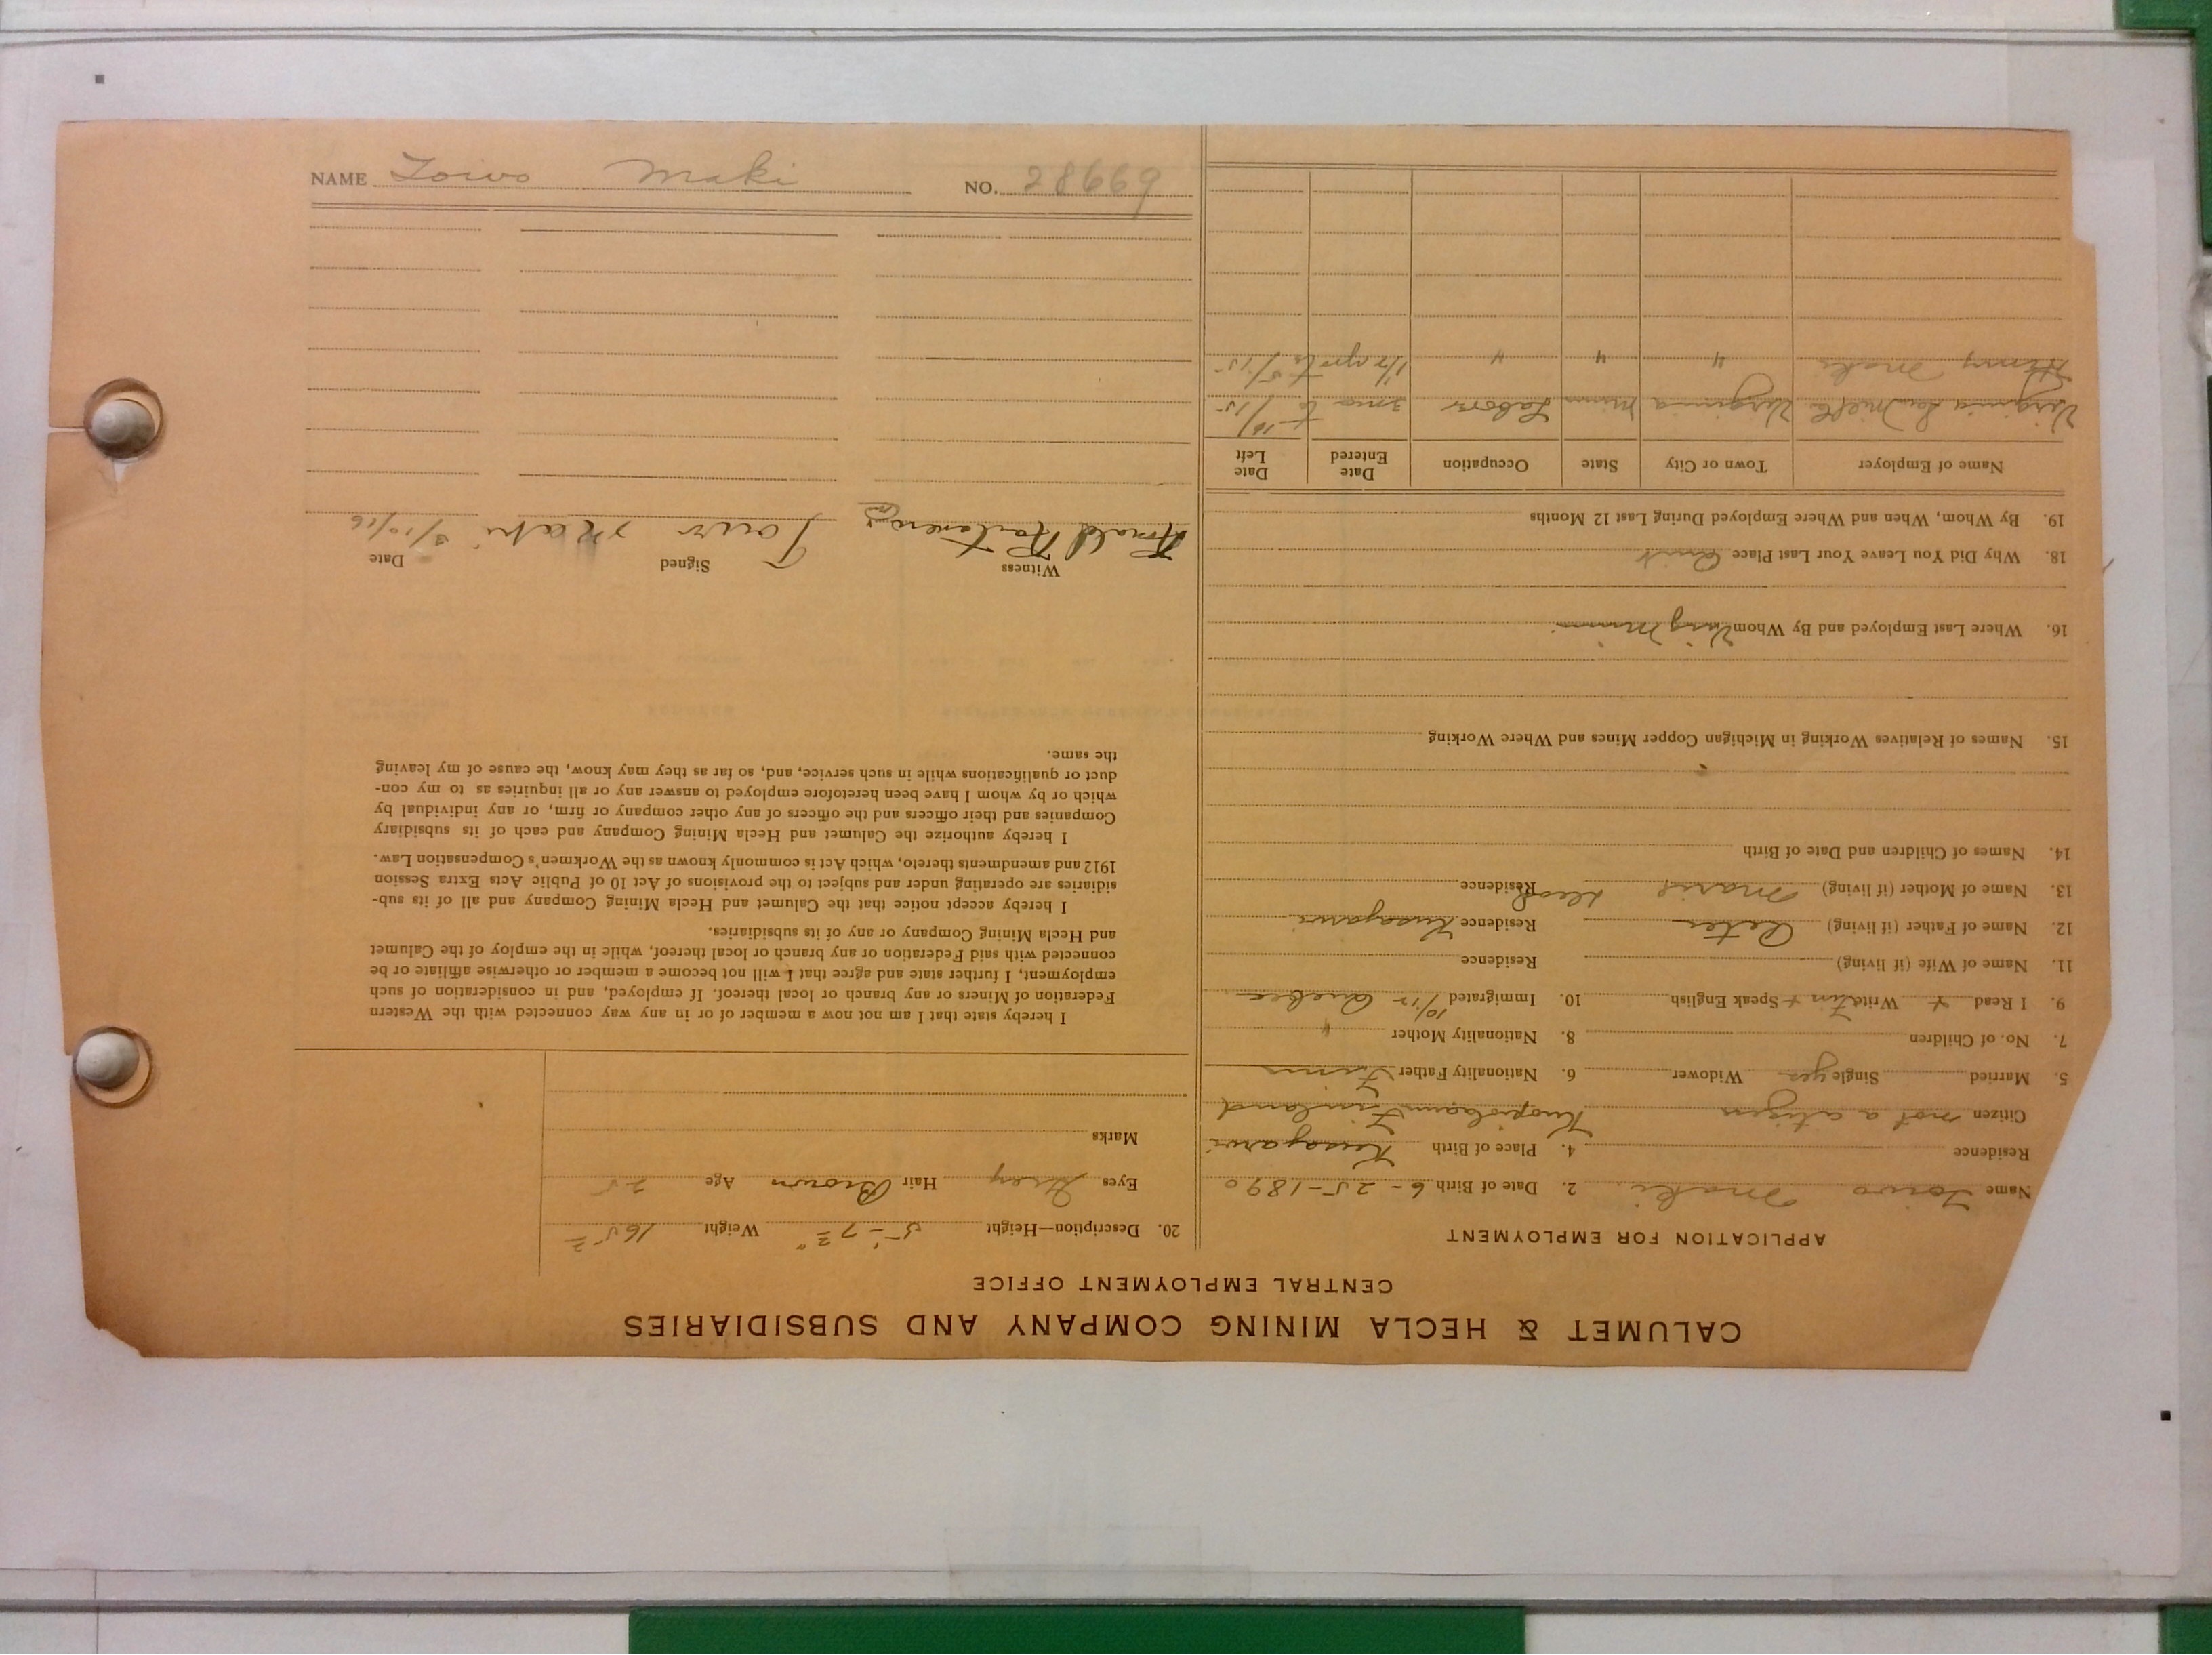 CALUMET & HECLA MINING COMPANY AND SUBSIDIARIES
CENTRAL EMPLOYMENT OFFICE
APPLICATION FOR EMPLOYMENT
Name Toivo Maki. 2. Date of Birth 6-25-1890
Residence 4. Place of Birth
Citizen not a citizen Finland
5. Married Single yes Widower 6. Nationality Father Finn
7. No. of Children 8. Nationality Mother "
9. I Read + Write Finn + Speak English 10. Immigrated 10/12 Quebec
11. Name of Wife (if living) Residence
12. Name of Father (if living) Peter Residence
13. Name of Mother (if living) Maria Residence Dead
14. Names of Children and Date of Birth
15. Names of Relatives Working in Michigan Copper Mines and Where Working
16. Where Last Employed and By Whom Virg Minn
18. Why Did You Leave Your Last Place Quit
19. By Whom, When and Where Employed During Last 12 Months
Name of Employer Town or City State Occupation Date Entered Date Left
Virginia Saw Mill Virginia Minn Labor 3 mo to 10/15
Henry Maki " " " 1/2 yr to 5/15
20. Description—Height 5'-7 1/2" Weight 165
Eyes Grey Hair Brown Age 25
Marks
I hereby state that I am not now a member of or in any way connected with the Western
Federation of Miners or any branch or local thereof. If employed, and in consideration of such
employment, I further state and agree that I will not become a member or otherwise affiliate or be
connected with said Federation or any branch or local thereof, while in the employ of the Calumet
and Hecla Mining Company or any of its subsidiaries.
I hereby accept notice that the Calumet and Hecla Mining Company and all of its sub-
sidiaries are operating under and subject to the provisions of Act 10 of Public Acts Extra Session
1912 and amendments thereto, which Act is commonly known as the Workmen's Compensation Law.
I hereby authorize the Calumet and Hecla Mining Company and each of its subsidiary
Companies and their officers and the officers of any other company or firm, or any individual by
which or by whom I have been heretofore employed to answer any or all inquiries as to my con-
duct or qualifications while in such service, and, so far as they may know, the cause of my leaving
the same.
Witness Signed Date
Toivo Maki 3/10/16
NAME Toivo Maki NO. 28669